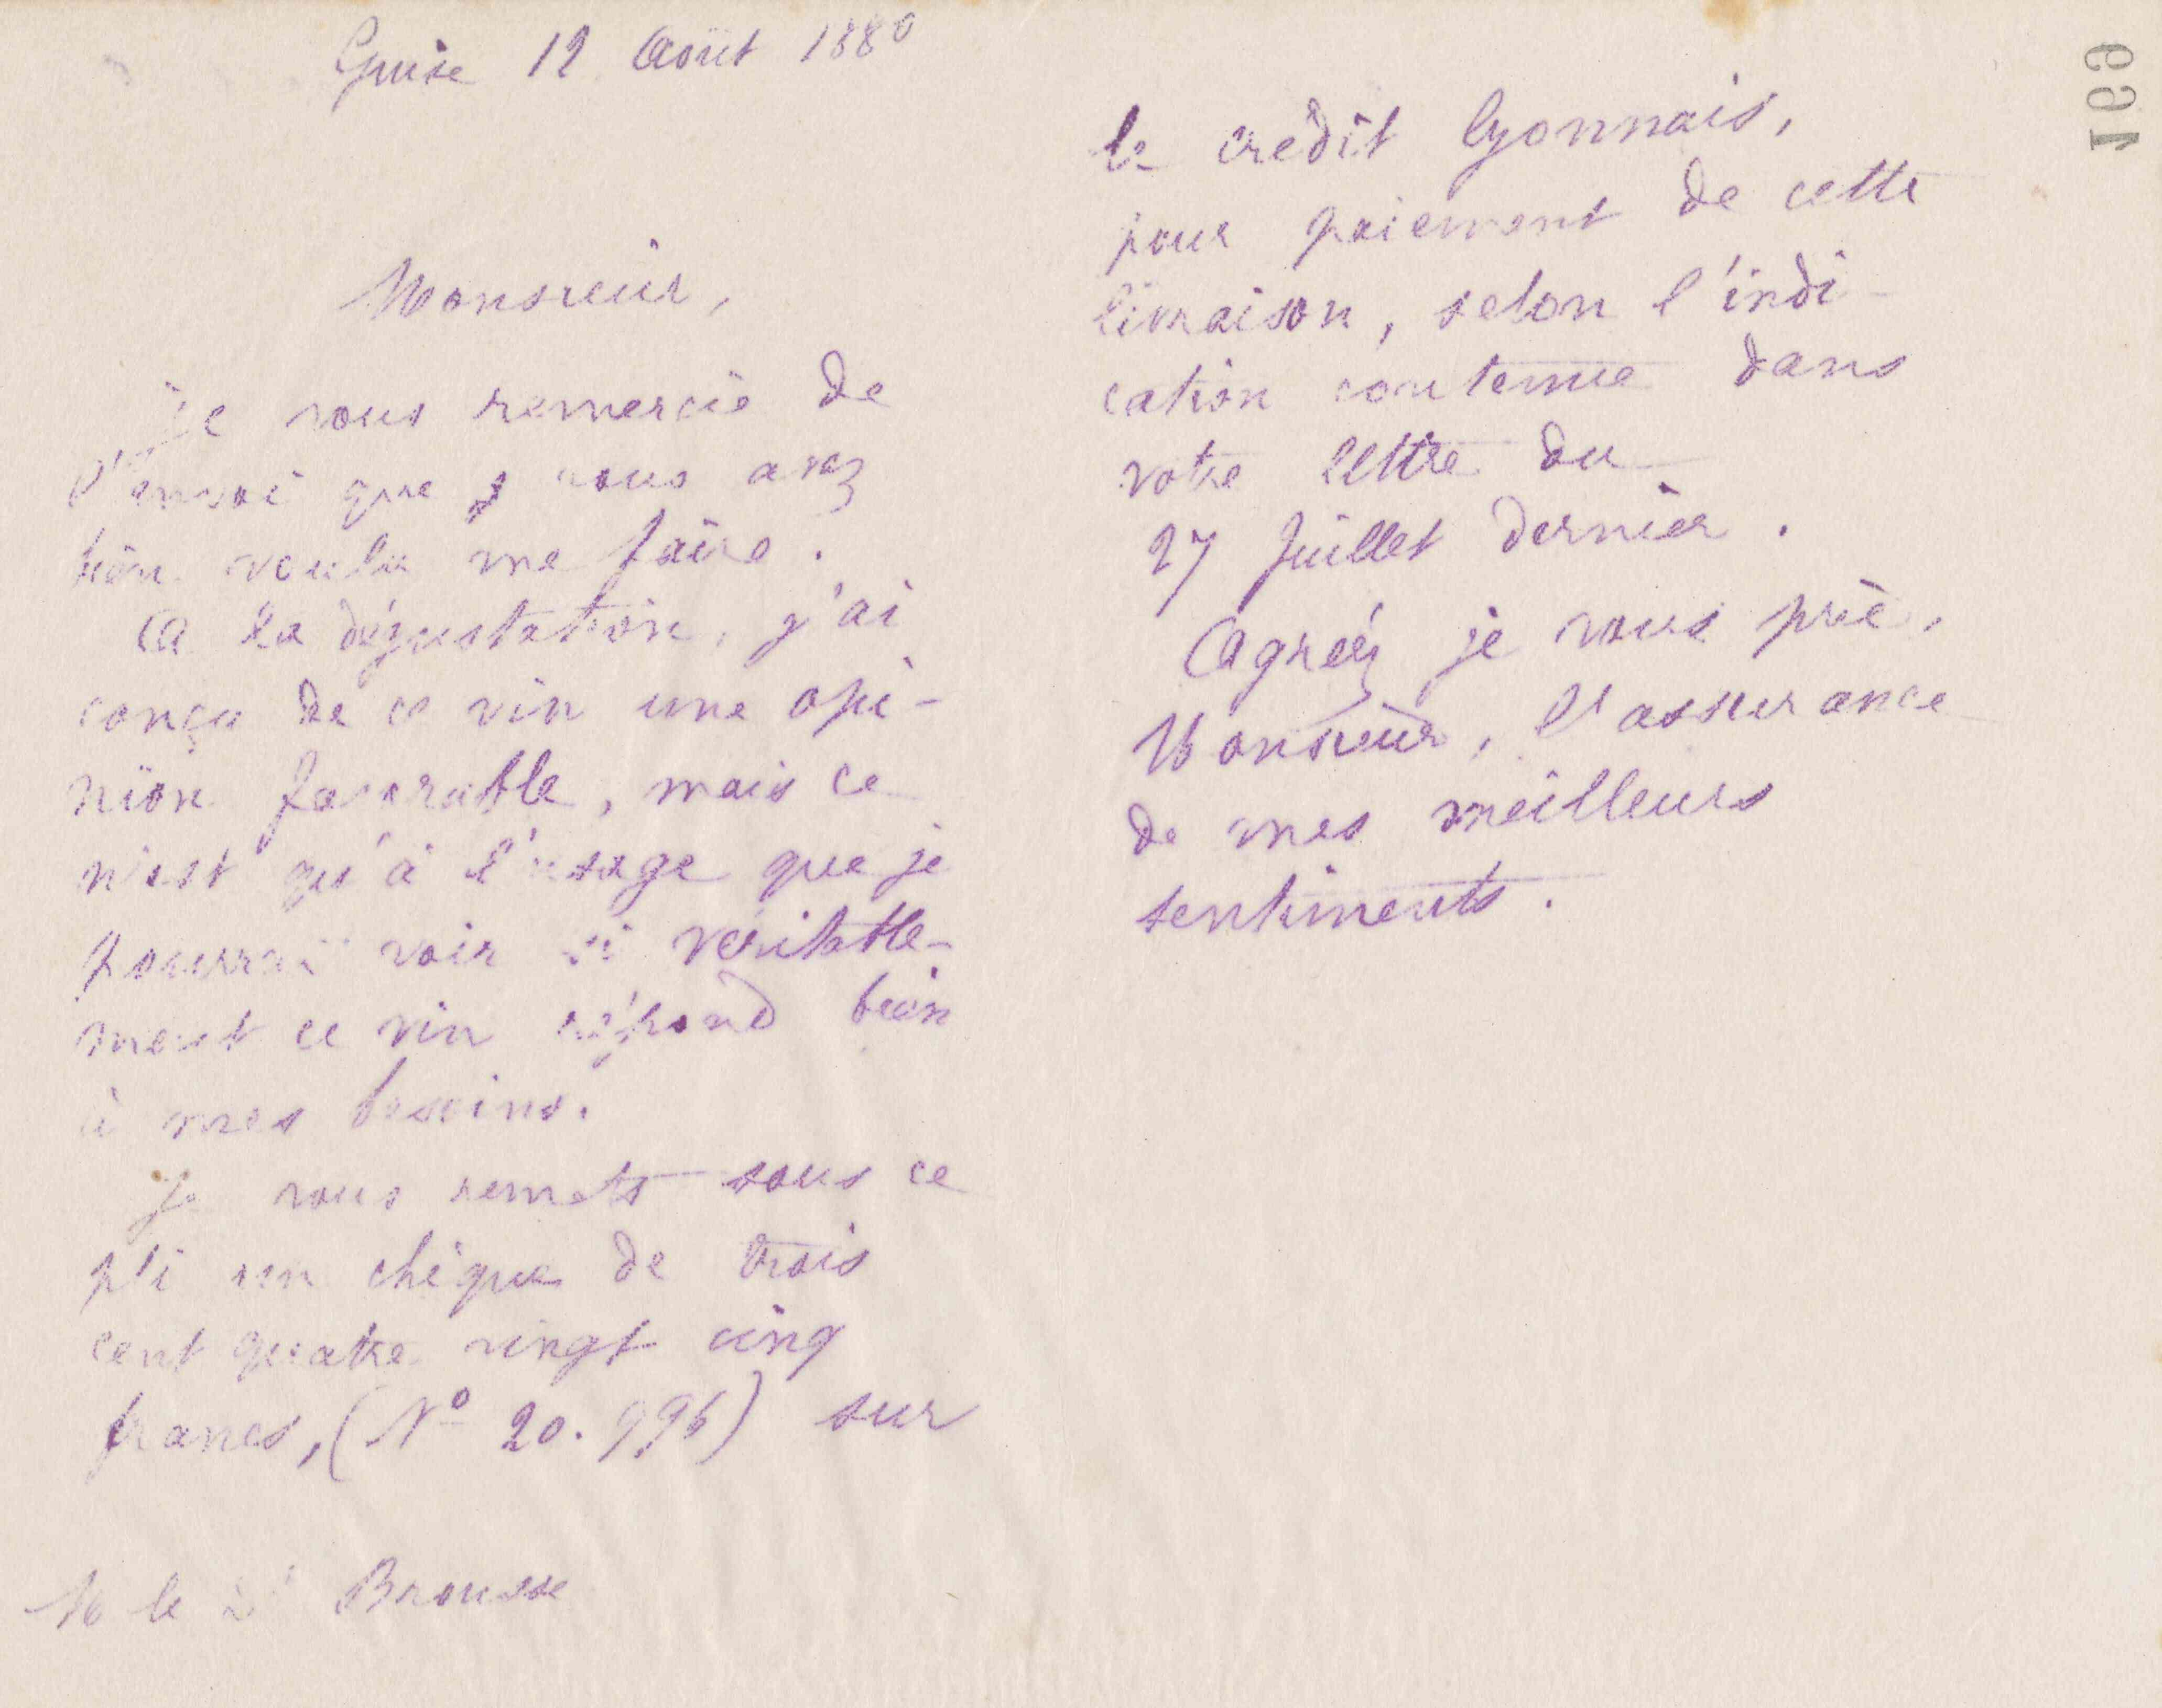 Guise 12 Août 1880
Monsieur,
Je vous remercie de
l'envoi que vous avez
bien voulu me faire.
A la dégustation, j'ai
conçu de ce vin une opi-
nion favorable, mais ce
n'est qu'à l'usage que je
pourrai voir si véritable-
ment ce vin répond bien
à mes besoins.
Je vous remets sous ce
pli un chèque de trois
cent quatre vingt cinq
francs, (N° 20.996) sur
M le Dr Brousse
le crédit lyonnais,
pour paiement de cette
livraison, selon l'indi-
cation contenue dans
votre lettre du
27 Juillet dernier.
Agréez je vous prie,
Monsieur, l'assurance
de mes meilleurs
sentiments.
169